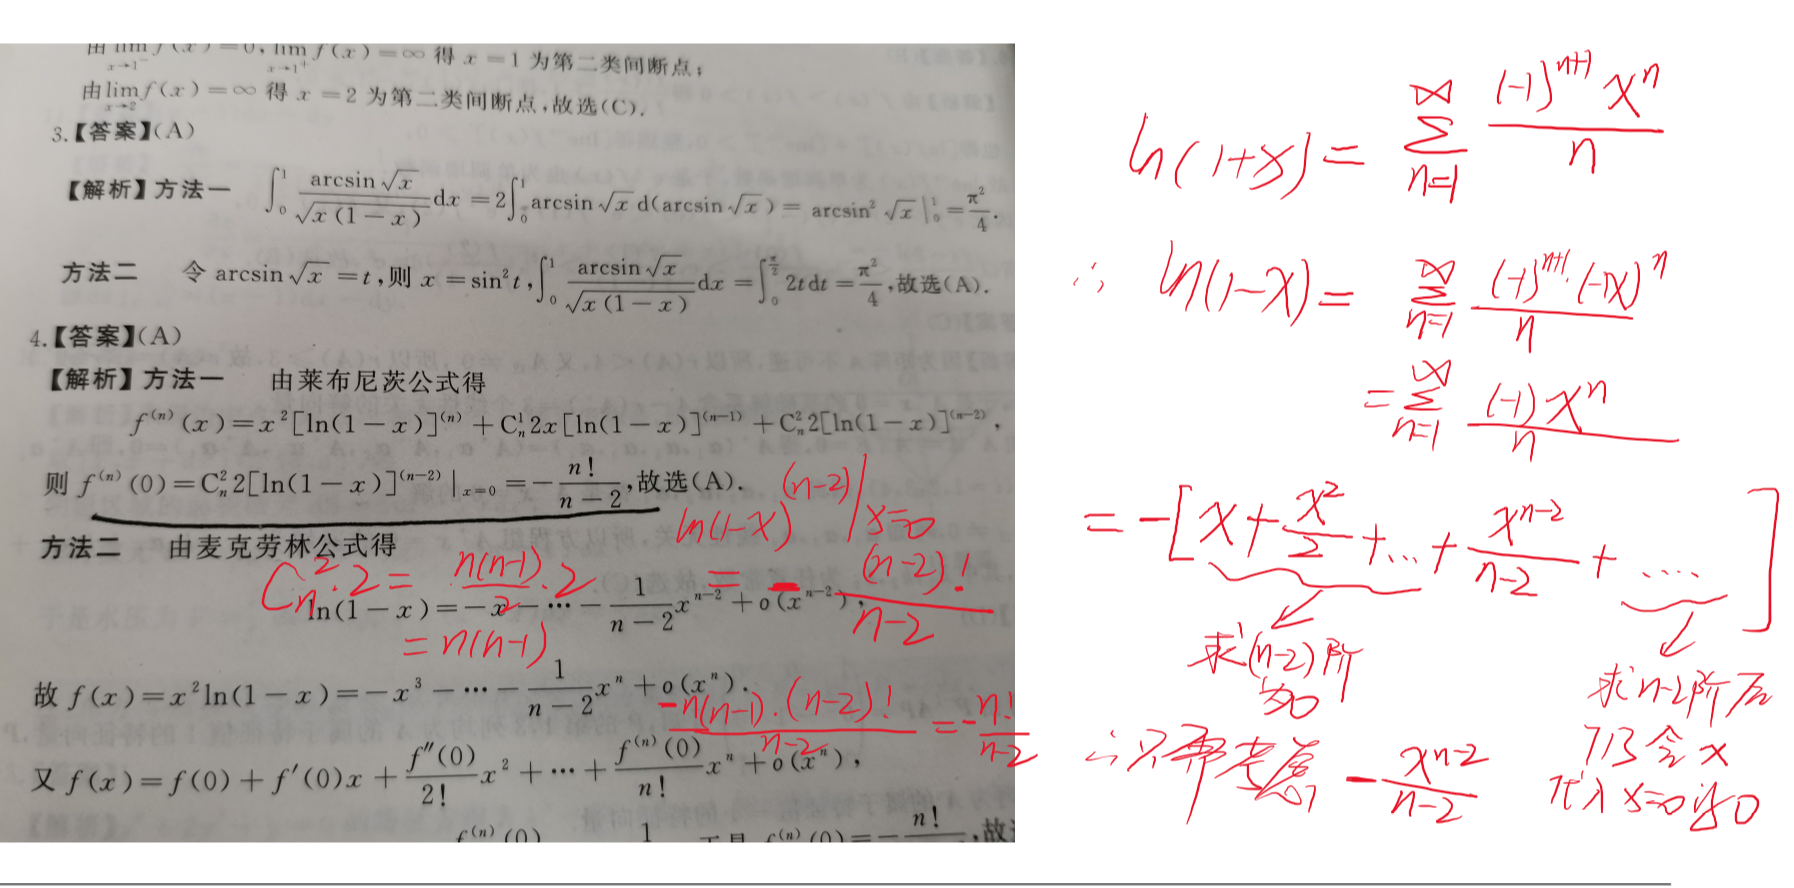 由lim x→1⁻ f(x)=0,lim x→1⁺ f(x)=∞ 得 x=1 为第二类间断点;
由lim x→2 f(x)=∞ 得 x=2 为第二类间断点,故选(C).
3.【答案】(A)
【解析】方法一 ∫₀¹ arcsin√x/√(x(1-x)) dx=2∫₀¹ arcsin√x d(arcsin√x)=arcsin²√x|₀¹=π²/4.
方法二 令 arcsin√x=t,则 x=sin²t,∫₀¹ arcsin√x/√(x(1-x)) dx=∫₀^(π/2) 2tdt=π²/4,故选(A).
4.【答案】(A)
【解析】方法一 由莱布尼茨公式得
f⁽ⁿ⁾(x)=x²[ln(1-x)]⁽ⁿ⁾+C¹ₙ2x[ln(1-x)]⁽ⁿ⁻¹⁾+C²ₙ2[ln(1-x)]⁽ⁿ⁻²⁾,
则 f⁽ⁿ⁾(0)=C²ₙ2[ln(1-x)]⁽ⁿ⁻²⁾|ₓ₌₀=-n!/(n-2),故选(A).
方法二 由麦克劳林公式得
ln(1-x)=-x-…-1/(n-2) xⁿ⁻²+o(xⁿ⁻²),
故 f(x)=x²ln(1-x)=-x³-…-1/(n-2) xⁿ+o(xⁿ).
又 f(x)=f(0)+f′(0)x+f″(0)/2! x²+…+f⁽ⁿ⁾(0)/n! xⁿ+o(xⁿ),
C²ₙ·2=n(n-1)/2·2
=n(n-1)
ln(1-x)⁽ⁿ⁻²⁾|x=0
=-(n-2)!/(n-2)
-n(n-1)·(n-2)!/(n-2)=-n!/(n-2)
ln(1+x)=∑(n=1,∞) (-1)ⁿ⁺¹xⁿ/n
∴ ln(1-x)=∑(n=1,∞) (-1)ⁿ⁺¹·(-1x)ⁿ/n
=∑(n=1,∞) (-1)xⁿ/n
=-[x+x²/2+…+xⁿ⁻²/(n-2)+….]
求(n-2)阶
为0
求n-2阶后
乃含x
代入x=0为0
∴只需考虑 -xⁿ⁻²/(n-2)